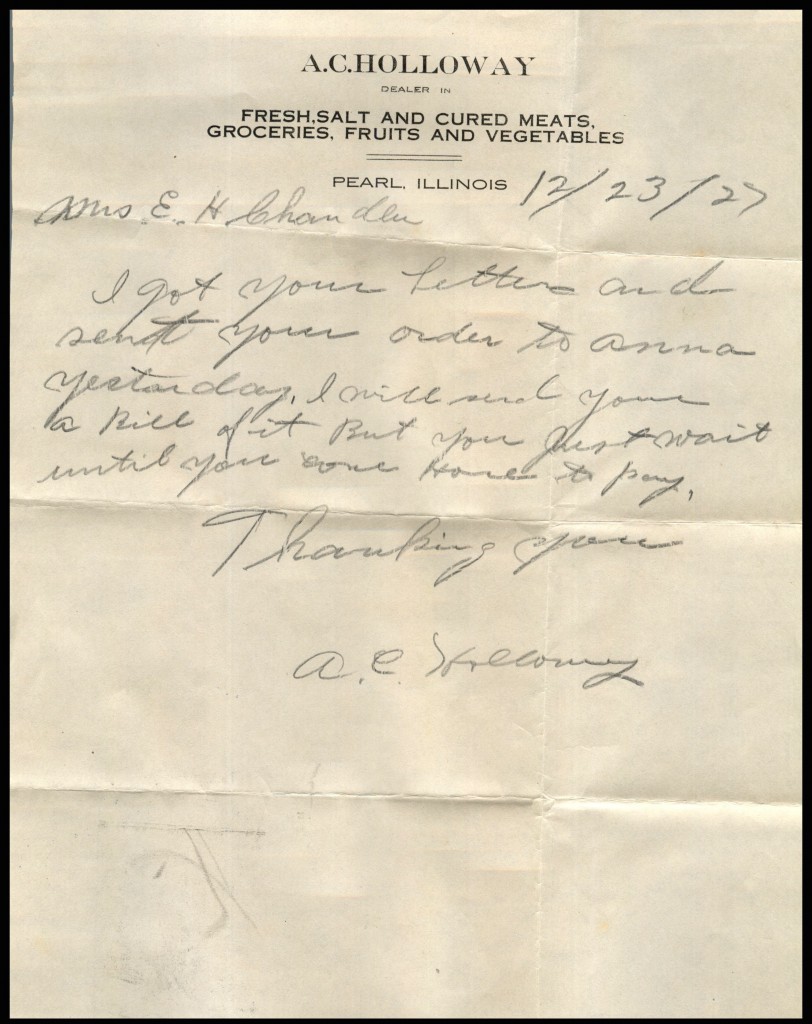 A.C.HOLLOWAY
DEALER IN
FRESH,SALT AND CURED MEATS,
GROCERIES, FRUITS AND VEGETABLES
PEARL, ILLINOIS 12/23/27
Mrs E. H Chandler
I got your letter and
sent your order to anna
yestarday, I will send your
a Bill of it But you Just wait
until you come Home to pay,
Thanking you
A. C. Holloway